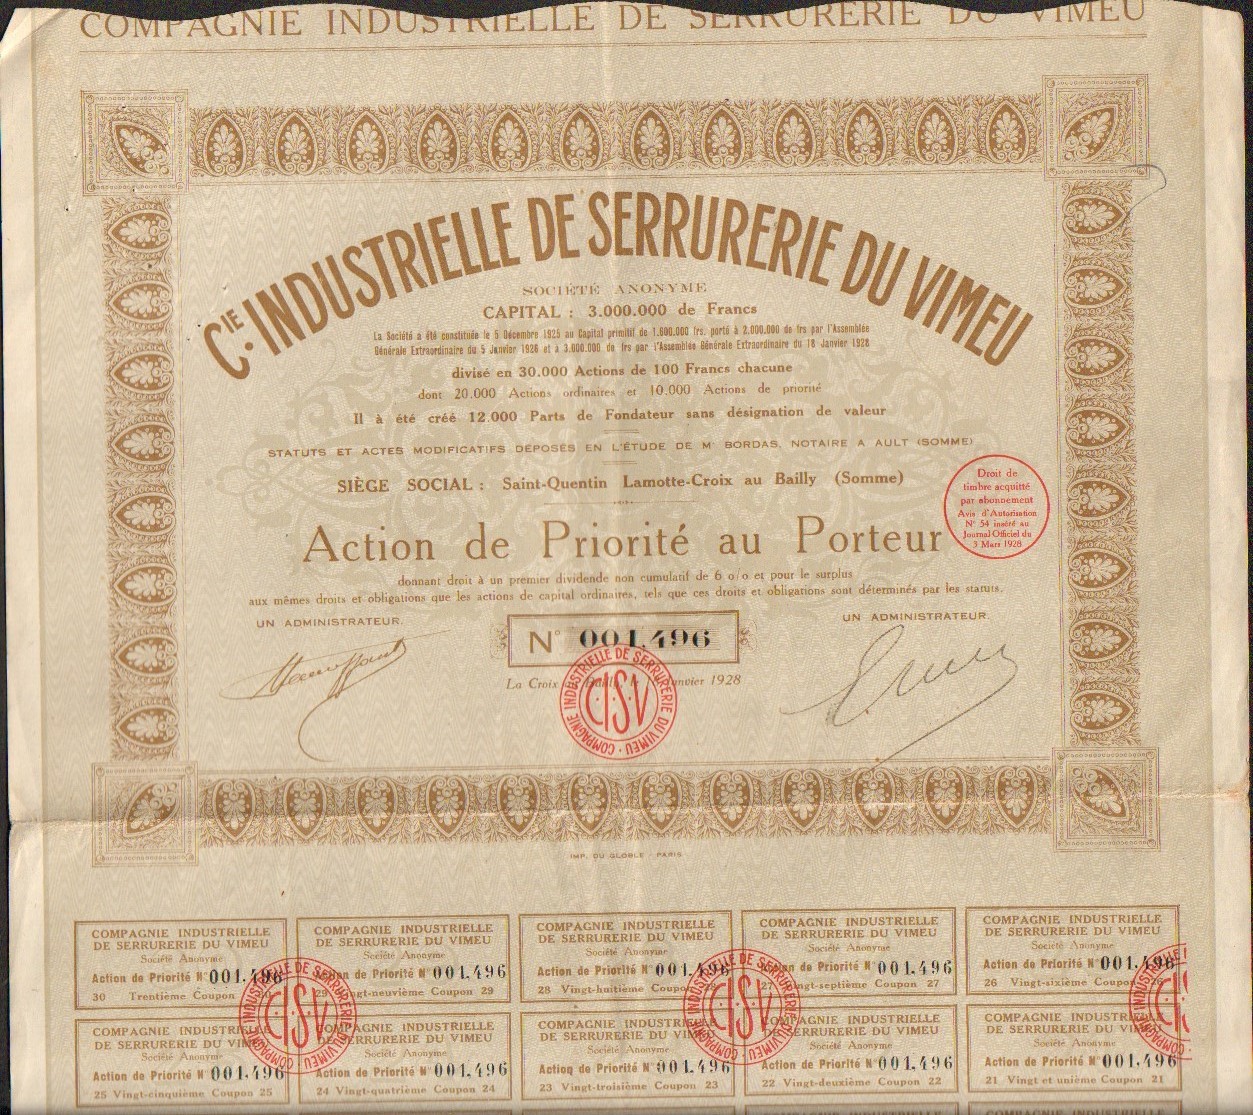 COMPAGNIE INDUSTRIELLE DE SERRURERIE DU VIMEU
CIE. INDUSTRIELLE DE SERRURERIE DU VIMEU
SOCIÉTÉ ANONYME
CAPITAL : 3.000.000 de Francs
La Société a été constituée le 5 Décembre 1925 au Capital primitif de 1.600.000 frs, porté à 2.000.000 de frs par l'Assemblée
Générale Extraordinaire du 5 Janvier 1926 et à 3.000.000 de frs par l'Assemblée Générale Extraordinaire du 18 Janvier 1928
divisé en 30.000 Actions de 100 Francs chacune
dont 20.000 Actions ordinaires et 10.000 Actions de priorité
Il à été créé 12.000 Parts de Fondateur sans désignation de valeur
STATUTS ET ACTES MODIFICATIFS DÉPOSÉS EN L'ÉTUDE DE Me BORDAS, NOTAIRE A AULT (SOMME)
SIÈGE SOCIAL : Saint-Quentin Lamotte-Croix au Bailly (Somme)
Droit de
timbre acquitté
par abonnement
Avis d'Autorisation
N° 54 inséré au
Journal Officiel du
3 Mars 1928
Action de Priorité au Porteur
donnant droit à un premier dividende non cumulatif de 6 o/o et pour le surplus
aux mêmes droits et obligations que les actions de capital ordinaires, tels que ces droits et obligations sont déterminés par les statuts.
UN ADMINISTRATEUR.
UN ADMINISTRATEUR
N° 001,496
La Croix Bailly le Janvier 1928
COMPAGNIE INDUSTRIELLE DE SERRURERIE DU VIMEU
CISV
IMP. DU GLOBE - PARIS
COMPAGNIE INDUSTRIELLE
DE SERRURERIE DU VIMEU
Société Anonyme
Action de Priorité N° 001.496
30 Trentième Coupon
COMPAGNIE INDUSTRIELLE
DE SERRURERIE DU VIMEU
Société Anonyme
Action de Priorité N° 001.496
29 Vingt-neuvième Coupon 29
COMPAGNIE INDUSTRIELLE
DE SERRURERIE DU VIMEU
Société Anonyme
Action de Priorité N° 001.496
28 Vingt-huitième Coupon 28
COMPAGNIE INDUSTRIELLE
DE SERRURERIE DU VIMEU
Société Anonyme
Action de Priorité N° 001.496
27 Vingt-septième Coupon 27
COMPAGNIE INDUSTRIELLE
DE SERRURERIE DU VIMEU
Société Anonyme
Action de Priorité N° 001.496
26 Vingt-sixième Coupon 26
COMPAGNIE INDUSTRIELLE DE SERRURERIE DU VIMEU
CISV
COMPAGNIE INDUSTRIELLE DE SERRURERIE DU VIMEU
CISV
COMPAGNIE INDUSTRIELLE
DE SERRURERIE DU VIMEU
Société Anonyme
Action de Priorité N° 001.496
25 Vingt-cinquième Coupon 25
COMPAGNIE INDUSTRIELLE
DE SERRURERIE DU VIMEU
Société Anonyme
Action de Priorité N° 001.496
24 Vingt-quatrième Coupon 24
COMPAGNIE INDUSTRIELLE
DE SERRURERIE DU VIMEU
Société Anonyme
Action de Priorité N° 001.496
23 Vingt-troisième Coupon 23
COMPAGNIE INDUSTRIELLE
DE SERRURERIE DU VIMEU
Société Anonyme
Action de Priorité N° 001.496
22 Vingt-deuxième Coupon 22
COMPAGNIE INDUSTRIELLE
DE SERRURERIE DU VIMEU
Société Anonyme
Action de Priorité N° 001.496
21 Vingt et unième Coupon 21